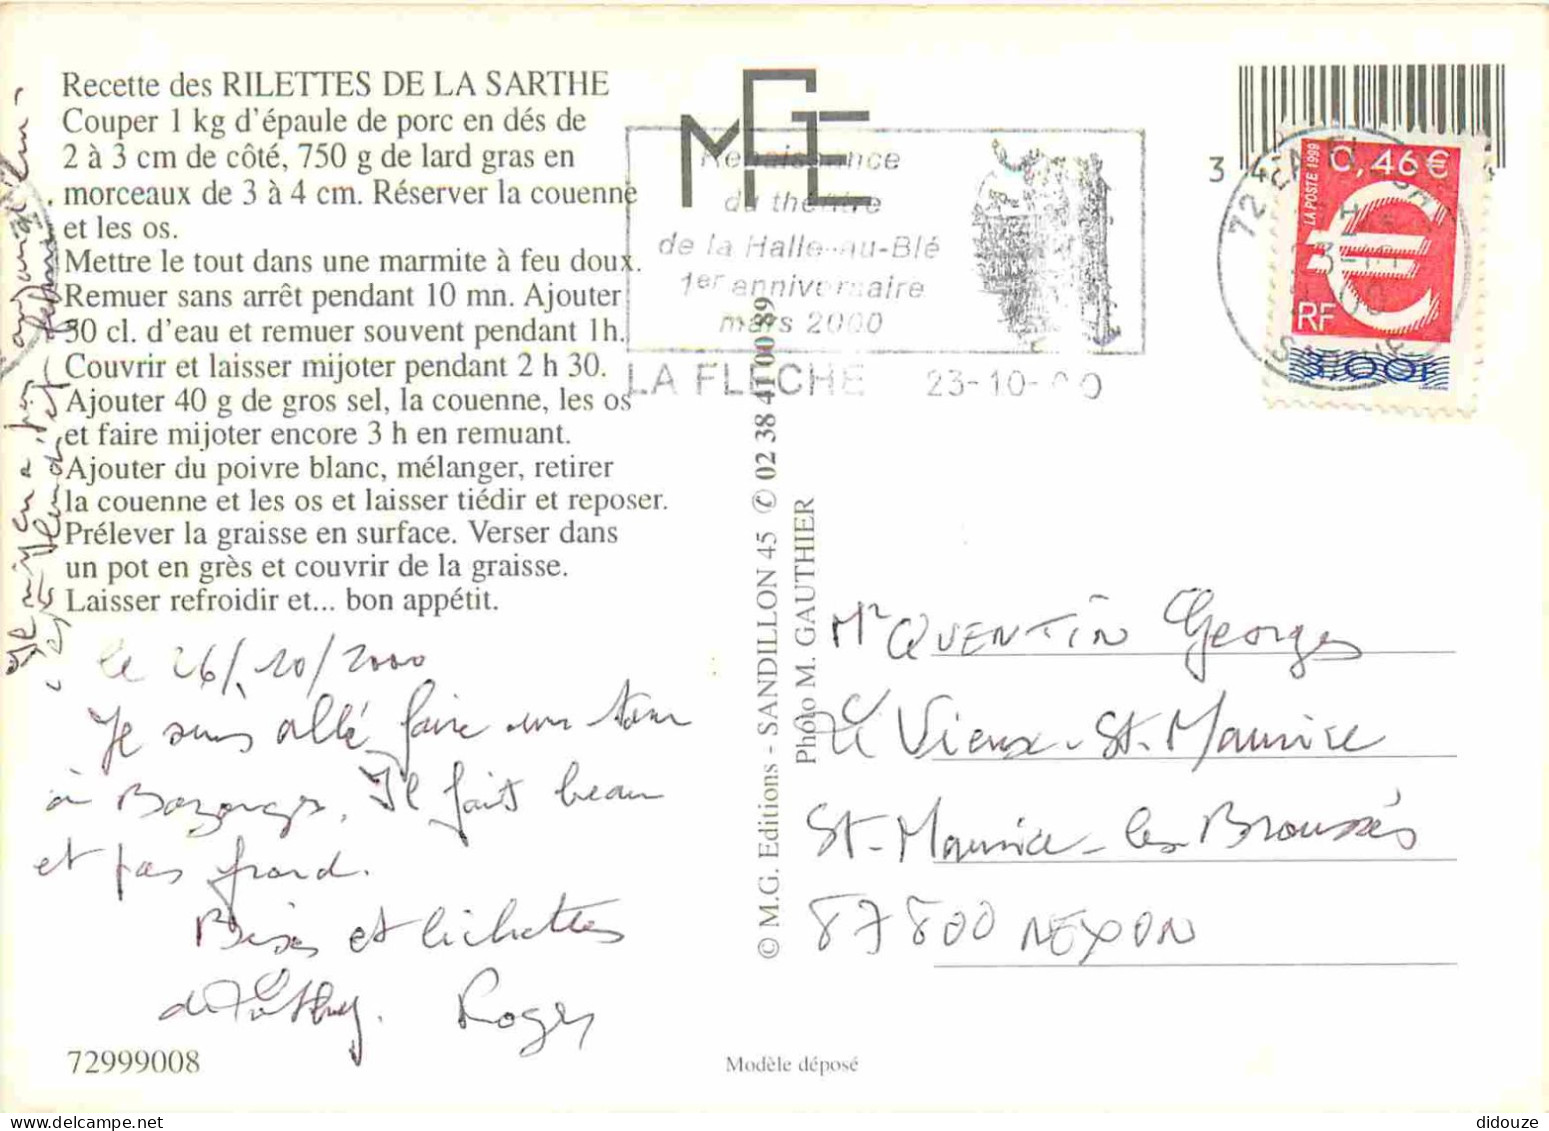 Recette des RILETTES DE LA SARTHE
Couper 1 kg d'épaule de porc en dés de
2 à 3 cm de côté, 750 g de lard gras en
morceaux de 3 à 4 cm. Réserver la couenne
et les os.
Mettre le tout dans une marmite à feu doux.
Remuer sans arrêt pendant 10 mn. Ajouter
30 cl. d'eau et remuer souvent pendant 1h.
Couvrir et laisser mijoter pendant 2 h 30.
Ajouter 40 g de gros sel, la couenne, les os
et faire mijoter encore 3 h en remuant.
Ajouter du poivre blanc, mélanger, retirer
la couenne et les os et laisser tiédir et reposer.
Prélever la graisse en surface. Verser dans
un pot en grès et couvrir de la graisse.
Laisser refroidir et... bon appétit.
le 26/10/2000
Je suis allé faire un tour
à Bazouges, Il fait beau
et pas froid.
Bises et lichettes
de
Roger
72999008
MGE
Renaissance
du théâtre
de la Halle-au-Blé
1er anniversaire
mars 2000
LA FLECHE 23-10-00
© M.G. Editions - SANDILLON 45 ✆ 02 38 41 00 89
Photo M. GAUTHIER
Modèle déposé
3
4
72 LA FLECHE
SARTHE
LA POSTE 1999
0,46 €
RF
3,00F
Mr QUENTIN Georges
Le Vieux-St-Maurice
St-Maurice-les-Brousses
87800 NEXON
didouze